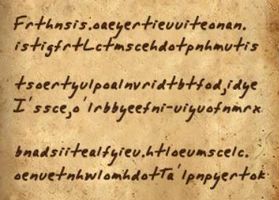 Frthnsis.oaeyertieuuiteonan.
istigfrtLctmscehdotpnhmutis
tsoertyulpoalnvridtbtfod,idye
I'ssce,o'lrbbyeefni-uiyuofnmrx
bnadsiitealfyieu.htloeumscelc.
oenuetnhwlomhdotTa'lpnpyertok